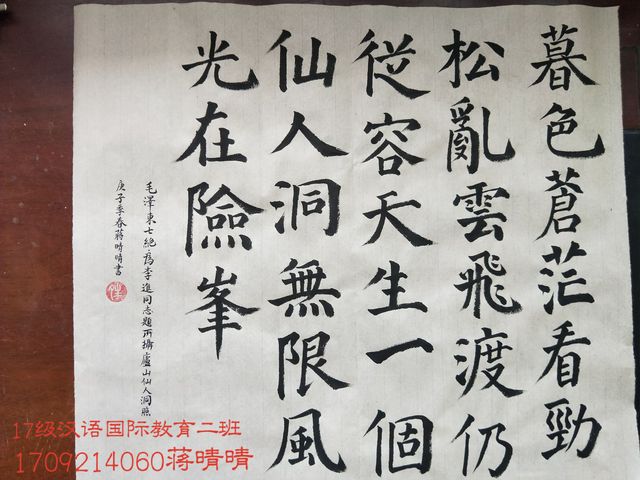 暮色蒼茫看勁
松亂雲飛渡仍
從容天生一個
仙人洞無限風
光在險峯
毛澤東七絕為李進同志題所攝廬山仙人洞照
庚子季春蔣晴晴書
17级汉语国际教育二班
1709214060蒋晴晴